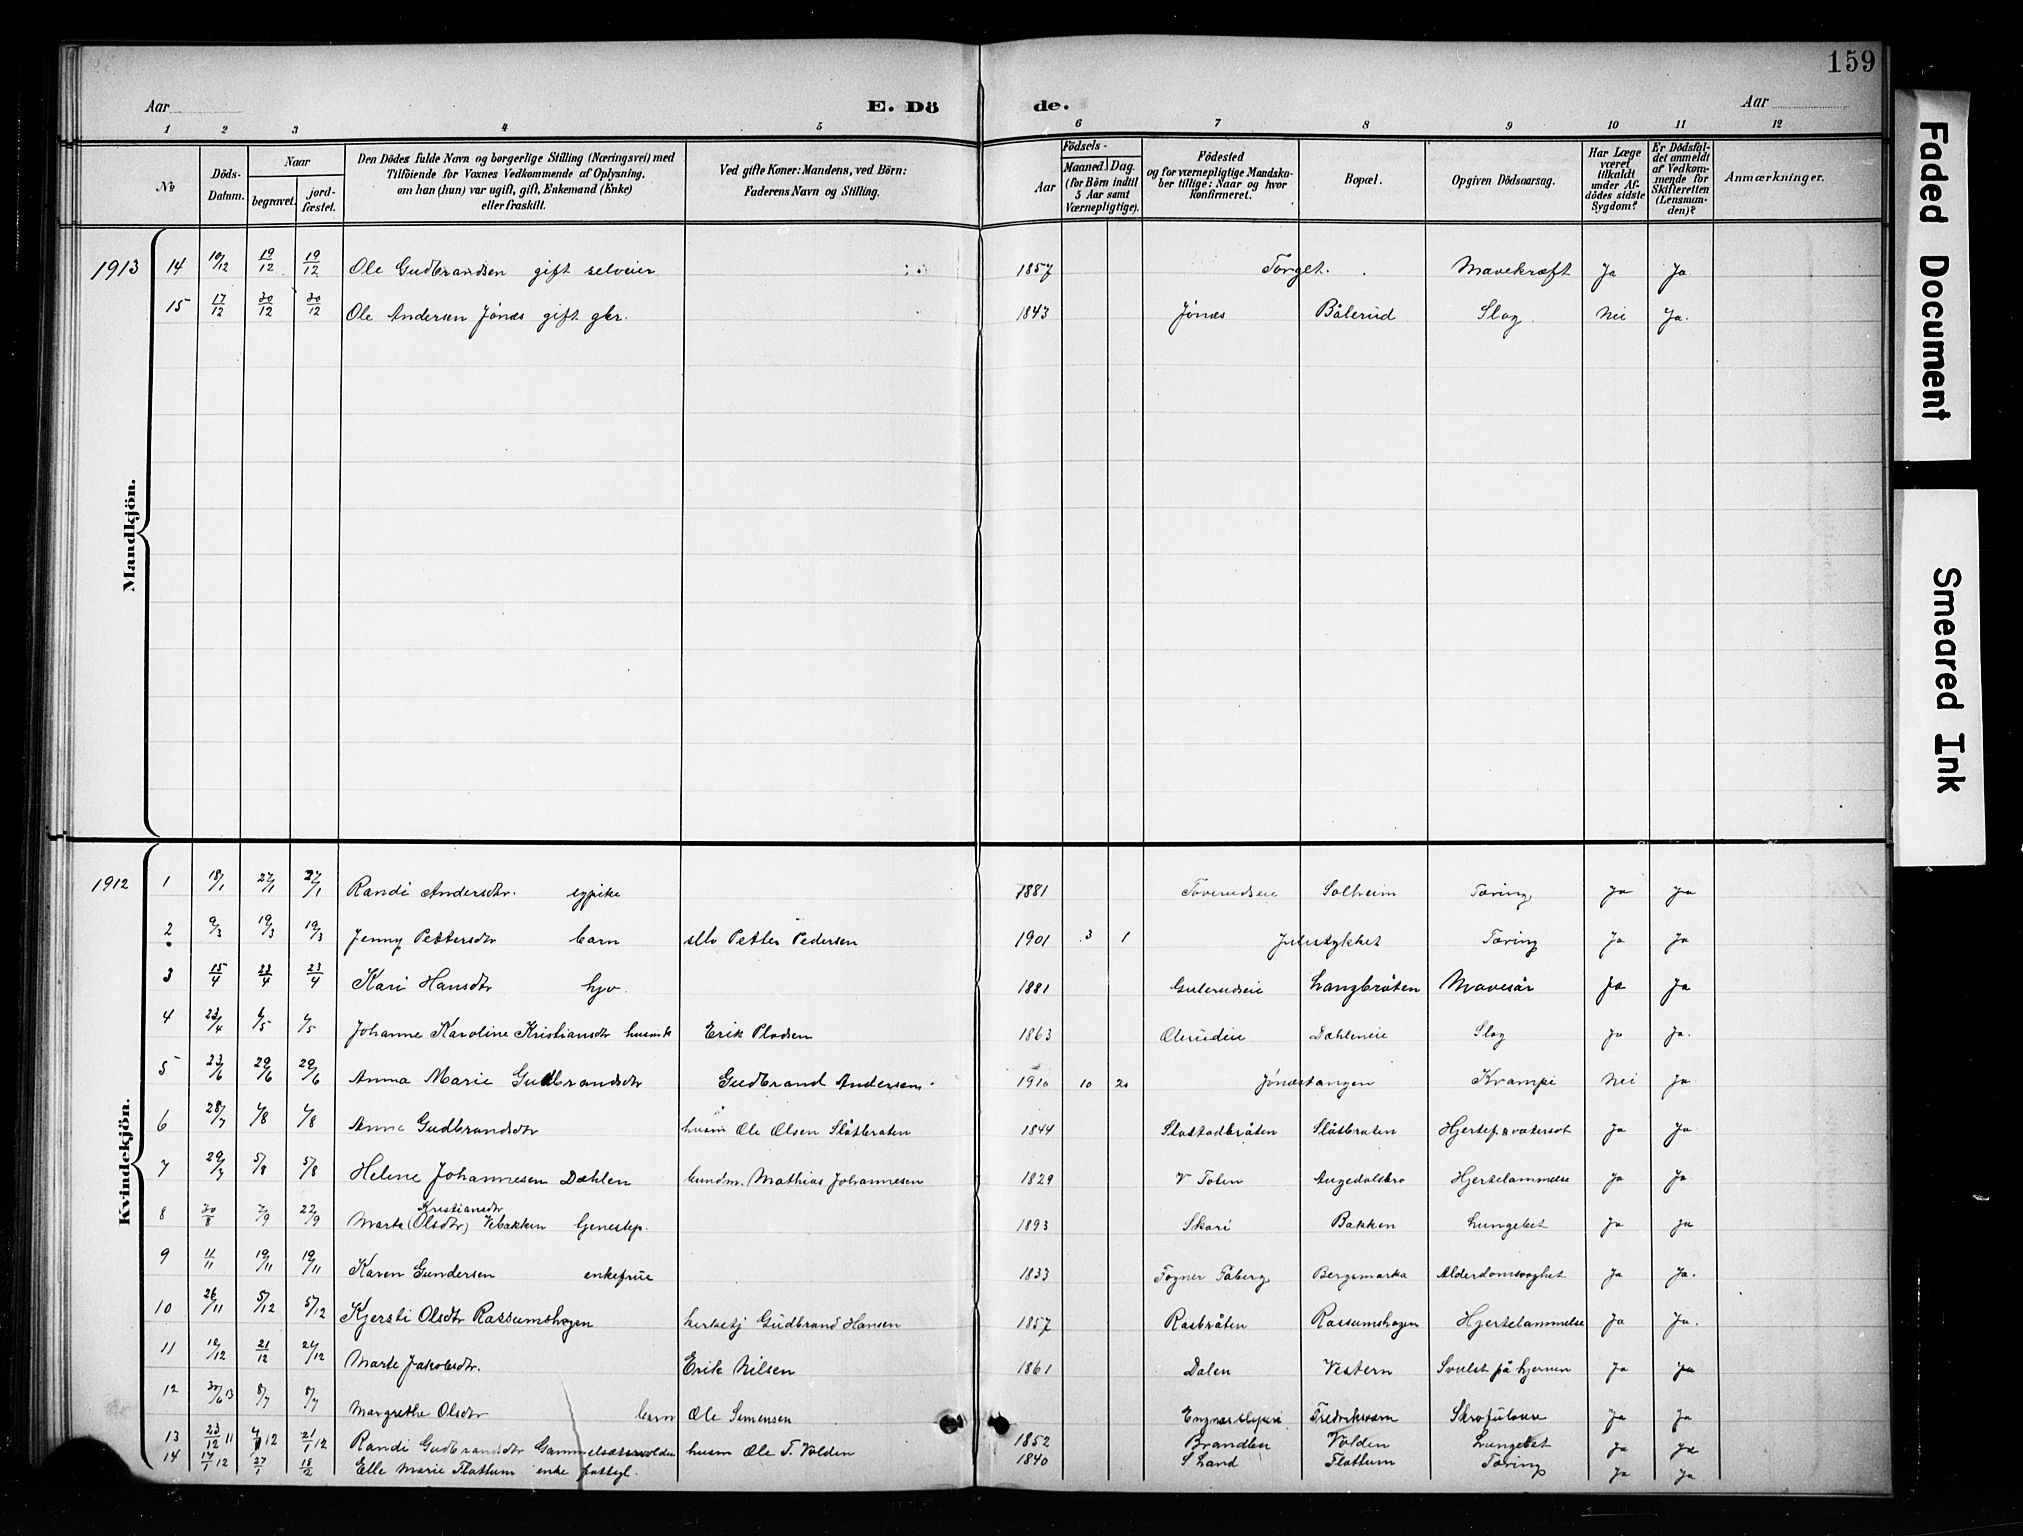 159
Aar
E. Dö de.
Aar
1 2 3 4 5 6 7 8 9 10 11 12
№
Döds-Datum.
Naar
begravet.
jord-fæstet.
Den Dödes fulde Navn og borgerlige Stilling (Næringsvei) med
Tilföiende for Voxnes Vedkommende af Oplysning,
om han (hun) var ugift, gift, Enkemand (Enke)
eller fraskilt.
Ved gifte Koner: Mandens, ved Börn:
Faderens Navn og Stilling.
Födsels-
Aar
Maaned Dag
(for Börn indtil
5 Aar samt
Værnepligtige).
Födested
og for værnepligtige Mandska-
ber tillige: Naar og hvor
Konfirmeret.
Bopæl.
Opgiven Dödsaarsag.
Har Læge
været
tilkaldt
under Af-
dödes sidste
Sygdom?
Er Dödsfal-
det anmeldt
af Vedkom-
mende for
Skifteretten
(Lensman-
den)?
Anmærkninger.
Mandkjön.
1913 14 10/12 19/12 19/12 Ole Gudbrandsen gift selveier 1857 Torget. Mavekræft Ja Ja
15 17/12 30/12 30/12 Ole Andersen Jønæs gift gbr. 1843 Jønæs Bålerud Slag. Nei Ja.
Kvindekjön.
1912 1 18/1 27/1 27/1 Randi Andersdtr. 1881 Solheim Tæring Ja Ja
2 9/3 19/3 19/3 Jenny Pettersdtr barn Petter Pedersen 1901 3 1 Julestykket Tæring Ja Ja
3 15/4 23/4 23/4 Kari Hansdtr 1881 Gulerudseie Langbråten Mavesår Ja Ja
4 23/4 4/5 4/5 Johanne Karoline Kristiansdtr Erik 1863 Dæhleneie Slag Ja Ja.
5 23/6 29/6 29/6 Anna Marie Gudbrandsdtr Gudbrand Andersen 1910 10 20 Jønæstangen Krampe Nei Ja
6 28/7 4/8 4/8 Anne Gudbrandsdtr husm Ole Olsen Slåtbraten 1844 Slåtbraten Ja Ja
7 29/7 5/8 5/8 Helene Johannesen Dæhlen Mathias Johannesen 1829 V Toten Hjertelammelse Ja Ja
8 30/8 7/9 22/9 Marte (Olsdtr) Kristiansdtr Vebakken tjenestep. 1893 Bakken Lungebet Ja Ja
9 11/11 19/11 19/11 Karen Gundersen enkefrue 1833 Bergsmarka Alderdomsvaghet Ja Ja.
10 26/11 5/12 5/12 Kjersti Olsdtr Rassumshagen Gudbrand Hansen 1857 Rasbråten Rassumshagen Hjertelammelse Ja Ja.
11 12/12 21/12 21/12 Marte Jakobsdtr. Erik Nilsen 1861 Dalen Vestern Svulst på hjernen Ja Ja
12 30/6 13 8/7 8/7 Margrethe Olsdtr barn Ole Simensen Ja Ja
13 23/12 11 12 21/1 12 Randi Gudbrandsdtr husm Ole T. Volden 1852 Volden Lungebet Ja Ja
14 17/1 12 27/1 18/2 Elle Marie Flattum enke 1840 S Land Flattum Tæring Ja Ja
Faded Document
Smeared Ink